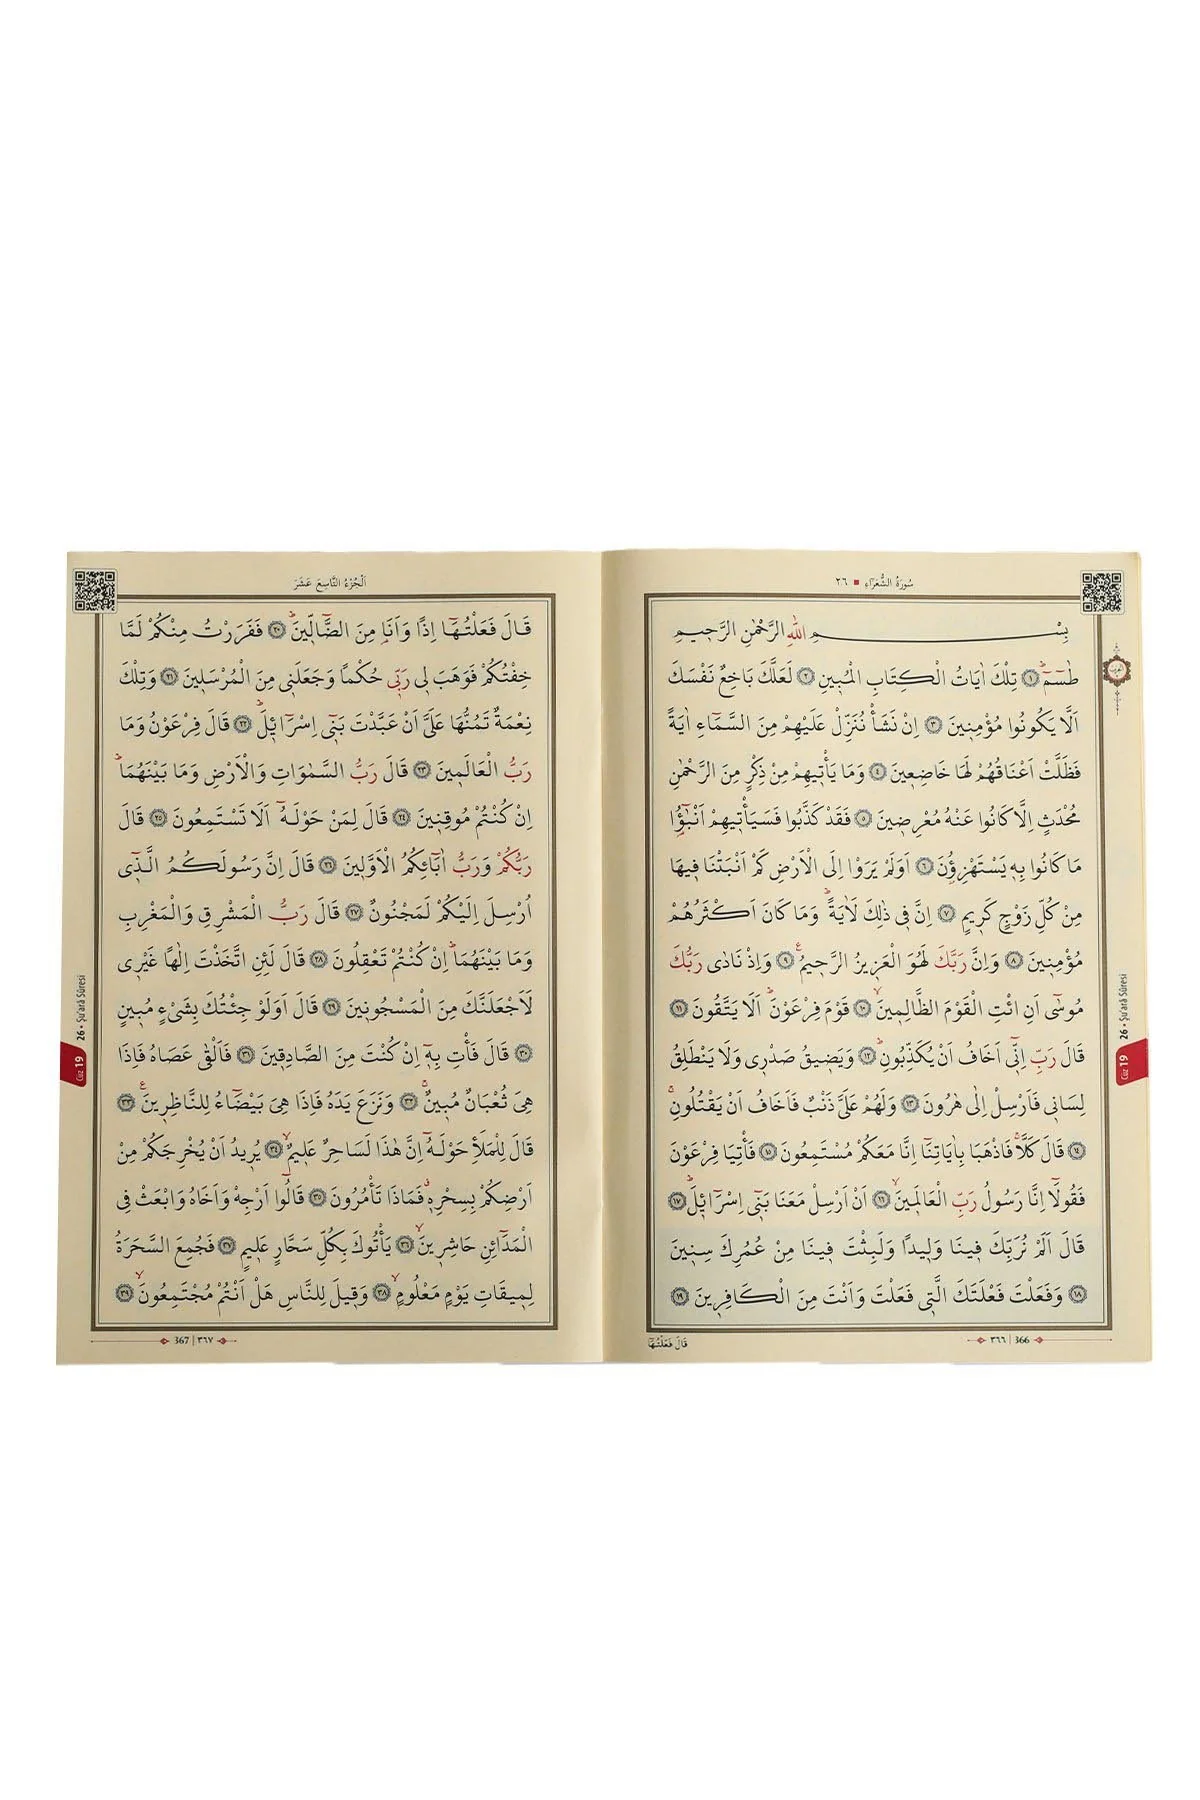 سُورَةُ الشُّعَرَاءِ ٢٦
بِسْمِ اللهِ الرَّحْمٰنِ الرَّحِيمِ
طٰسٓمٓ ﴿١﴾ تِلْكَ اٰيَاتُ الْكِتَابِ الْمُبِينِ ﴿٢﴾ لَعَلَّكَ بَاخِعٌ نَفْسَكَ
اَلَّا يَكُونُوا مُؤْمِنِينَ ﴿٣﴾ اِنْ نَشَأْ نُنَزِّلْ عَلَيْهِمْ مِنَ السَّمَٓاءِ اٰيَةً
فَظَلَّتْ اَعْنَاقُهُمْ لَهَا خَاضِعِينَ ﴿٤﴾ وَمَا يَأْتِيهِمْ مِنْ ذِكْرٍ مِنَ الرَّحْمٰنِ
مُحْدَثٍ اِلَّا كَانُوا عَنْهُ مُعْرِضِينَ ﴿٥﴾ فَقَدْ كَذَّبُوا فَسَيَأْتِيهِمْ اَنْبٰٓؤُا
مَا كَانُوا بِهِ يَسْتَهْزِؤُنَ ﴿٦﴾ اَوَلَمْ يَرَوْا اِلَى الْاَرْضِ كَمْ اَنْبَتْنَا فِيهَا
مِنْ كُلِّ زَوْجٍ كَرِيمٍ ﴿٧﴾ اِنَّ فِي ذٰلِكَ لَاٰيَةً وَمَا كَانَ اَكْثَرُهُمْ
مُؤْمِنِينَ ﴿٨﴾ وَاِنَّ رَبَّكَ لَهُوَ الْعَزِيزُ الرَّحِيمُ ﴿٩﴾ وَاِذْ نَادٰى رَبُّكَ
مُوسٰٓى اَنِ ائْتِ الْقَوْمَ الظَّالِمِينَ ﴿١٠﴾ قَوْمَ فِرْعَوْنَ اَلَا يَتَّقُونَ ﴿١١﴾
قَالَ رَبِّ اِنِّٓي اَخَافُ اَنْ يُكَذِّبُونِ ﴿١٢﴾ وَيَضِيقُ صَدْرِي وَلَا يَنْطَلِقُ
لِسَانِي فَاَرْسِلْ اِلٰى هٰرُونَ ﴿١٣﴾ وَلَهُمْ عَلَيَّ ذَنْبٌ فَاَخَافُ اَنْ يَقْتُلُونِ
﴿١٤﴾ قَالَ كَلَّا فَاذْهَبَا بِاٰيَاتِنَٓا اِنَّا مَعَكُمْ مُسْتَمِعُونَ ﴿١٥﴾ فَأْتِيَا فِرْعَوْنَ
فَقُولَٓا اِنَّا رَسُولُ رَبِّ الْعَالَمِينَ ﴿١٦﴾ اَنْ اَرْسِلْ مَعَنَا بَنِٓي اِسْرَٓائِلَ ﴿١٧﴾
قَالَ اَلَمْ نُرَبِّكَ فِينَا وَلِيدًا وَلَبِثْتَ فِينَا مِنْ عُمُرِكَ سِنِينَ
﴿١٨﴾ وَفَعَلْتَ فَعْلَتَكَ الَّتِي فَعَلْتَ وَاَنْتَ مِنَ الْكَافِرِينَ ﴿١٩﴾
قَالَ فَعَلْتُهَٓا
٣٦٦ | 366
26 • Şu'arâ Sûresi
Cüz 19
اَلْجُزْءُ التَّاسِعَ عَشَرَ
قَالَ فَعَلْتُهَٓا اِذًا وَاَنَا۬ مِنَ الضَّٓالِّينَ ﴿٢٠﴾ فَفَرَرْتُ مِنْكُمْ لَمَّا
خِفْتُكُمْ فَوَهَبَ لِي رَبِّي حُكْمًا وَجَعَلَنِي مِنَ الْمُرْسَلِينَ ﴿٢١﴾ وَتِلْكَ
نِعْمَةٌ تَمُنُّهَا عَلَيَّ اَنْ عَبَّدْتَ بَنِٓي اِسْرَٓائِلَ ﴿٢٢﴾ قَالَ فِرْعَوْنُ وَمَا
رَبُّ الْعَالَمِينَ ﴿٢٣﴾ قَالَ رَبُّ السَّمٰوَاتِ وَالْاَرْضِ وَمَا بَيْنَهُمَا
اِنْ كُنْتُمْ مُوقِنِينَ ﴿٢٤﴾ قَالَ لِمَنْ حَوْلَهُٓ اَلَا تَسْتَمِعُونَ ﴿٢٥﴾ قَالَ
رَبُّكُمْ وَرَبُّ اٰبَٓائِكُمُ الْاَوَّلِينَ ﴿٢٦﴾ قَالَ اِنَّ رَسُولَكُمُ الَّذِٓي
اُرْسِلَ اِلَيْكُمْ لَمَجْنُونٌ ﴿٢٧﴾ قَالَ رَبُّ الْمَشْرِقِ وَالْمَغْرِبِ
وَمَا بَيْنَهُمَا اِنْ كُنْتُمْ تَعْقِلُونَ ﴿٢٨﴾ قَالَ لَئِنِ اتَّخَذْتَ اِلٰهًا غَيْرِي
لَاَجْعَلَنَّكَ مِنَ الْمَسْجُونِينَ ﴿٢٩﴾ قَالَ اَوَلَوْ جِئْتُكَ بِشَيْءٍ مُبِينٍ
﴿٣٠﴾ قَالَ فَأْتِ بِهِٓ اِنْ كُنْتَ مِنَ الصَّادِقِينَ ﴿٣١﴾ فَاَلْقٰى عَصَاهُ فَاِذَا
هِيَ ثُعْبَانٌ مُبِينٌ ﴿٣٢﴾ وَنَزَعَ يَدَهُ فَاِذَا هِيَ بَيْضَٓاءُ لِلنَّاظِرِينَ ﴿٣٣﴾
قَالَ لِلْمَلَأِ حَوْلَهُٓ اِنَّ هٰذَا لَسَاحِرٌ عَلِيمٌ ﴿٣٤﴾ يُرِيدُ اَنْ يُخْرِجَكُمْ مِنْ
اَرْضِكُمْ بِسِحْرِهِ فَمَاذَا تَأْمُرُونَ ﴿٣٥﴾ قَالُٓوا اَرْجِهْ وَاَخَاهُ وَابْعَثْ فِي
الْمَدَٓائِنِ حَاشِرِينَ ﴿٣٦﴾ يَأْتُوكَ بِكُلِّ سَحَّارٍ عَلِيمٍ ﴿٣٧﴾ فَجُمِعَ السَّحَرَةُ
لِمِيقَاتِ يَوْمٍ مَعْلُومٍ ﴿٣٨﴾ وَقِيلَ لِلنَّاسِ هَلْ اَنْتُمْ مُجْتَمِعُونَ ﴿٣٩﴾
367 | ٣٦٧
26 • Şu'arâ Sûresi
Cüz 19